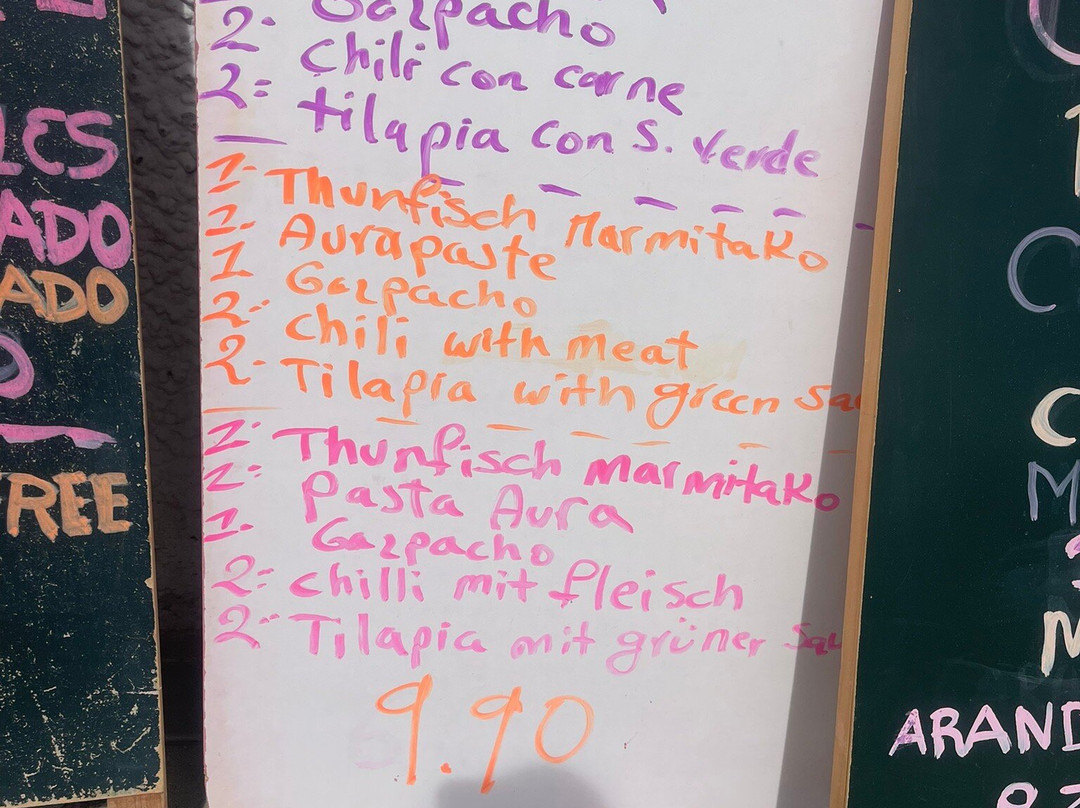 2- Gazpacho
2= Chili con carne
2= tilapia con S. Verde
1- Thunfisch Marmitako
1. Aurapaste
1 Gazpacho
2- Chili with meat
2- Tilapia with green Sau
1- Thunfisch Marmitako
1= Pasta Aura
1. Gazpacho
2= chilli mit fleisch
2- Tilapia mit grüner Sau
9.90
LES
ADO
ADO
O
FREE
C
C
M
M
ARAND